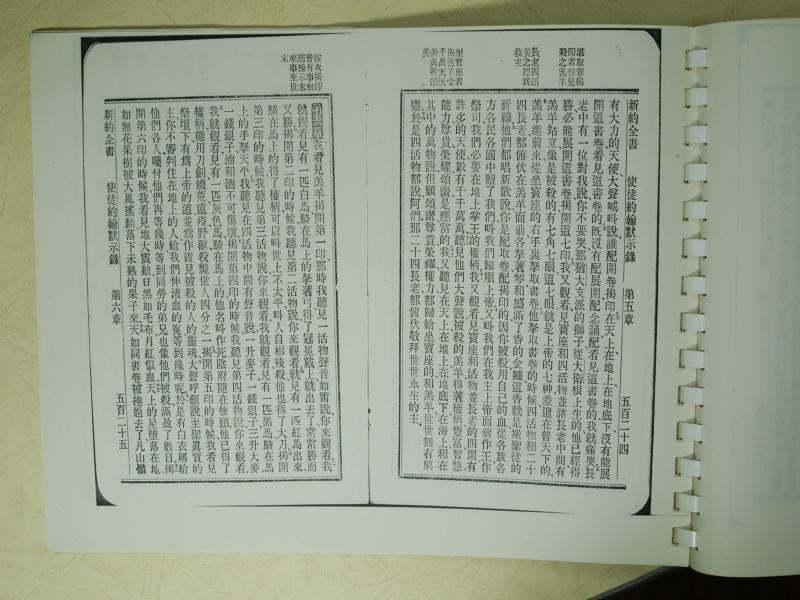 堪取卷揭
印者惟見
殺之羔羊
長老因頌
美之認爲
救主
坐寶座者
與羔羊受
千萬天使
並萬物頌
美
新約全書　使徒約翰默示錄　第五章　五百二十四
有大力的天使、大聲喊叫說、誰配開卷揭印、在天上在地上在地底下、沒有能展
開這書卷看見這書卷的、旣沒有配展開配念誦配看見這書卷的、我就痛哭、長
老中有一位對我說、你不要哭、那猶大支派的獅子、從大衛根上生的、他已經得
勝、必能展開這書卷揭開這七印、我又觀看見寶座和四活物並諸長老中間、有
羔羊站立、像是被殺的、有七角七眼、這七眼、就是上帝的七神、差遣在普天下的、
羔羊進前來、從坐寶座的右手裏拏取書卷、他拏取書卷的時候、四活物和二十
四長老都俯伏在羔羊面前、各拏著琴和盛滿了香的金鑪、這香就是衆聖徒的
祈禱、他們都唱新歌說、你是配取卷配揭印的、因你被殺、用自己的血、從各族各
方各民各國中贖了我們、叫我們歸順上帝、又叫我們在我主上帝面前作王作
祭司、我們必要在地上掌王的權柄、我又觀看見寶座和活物並長老的四圍有
許多的天使、數有千千萬萬、聽見他們大聲說、被殺的羔羊、得著權柄豐富智慧
能力尊貴榮耀頌讚、是應當的、我又聽見在天上在地上在地底下在海上和在
其中的萬物說、但願頌讚尊貴榮耀權力、都歸給坐寶座的和羔羊、世世無有窮
盡、於是四活物都說阿們、那二十四長老都俯伏敬拜世世永生的主、
按次揭印
皆有事相
隨像示未
來事至世
末
我看見羔羊揭開第一印、那時我聽見一活物聲音如雷說、你來觀看、我
就觀看見有一匹白馬、騎在馬上的拏著弓、得了冠冕戴上、就出去了、常常勝而
又勝、揭開第二印的時候、我聽見第二活物說、你來觀看、就見有一匹紅馬出來、
騎在馬上的得了權柄、可以叫世上不太平、叫人自相殘殺、他也得了大刀、揭開
第三印的時候、我聽見第三活物說、你來觀看、我就觀看見有一匹黑馬、騎在馬
上的手拏天平、我聽見在四活物中間有聲音說、一升麥子、一錢銀子、三升大麥
一錢銀子、油和酒不可傷壞、揭開第四印的時候、我聽見第四活物說、你來觀看、
我就觀看見有一匹灰色馬、騎在馬上的、他名叫作死、陰府隨在後頭、他已得了
權柄、能用刀劍饑荒瘟疫野獸殺斃世人四分之一、揭開第五印的時候、我看見
祭壇下有爲上帝的道並爲作證見被殺的人的靈魂、大聲呼籲說、至聖眞實的
主、你不審判住在地上的人、給我們伸流血的冤、等到幾時呢、於是有白衣賜給
他們各人、囑付他們再等幾時、等到同勞的弟兄也像他們被殺滿盈了數目、揭
開第六印的時候、我看見地大震動、日黑如毛布、月紅似血、天上的星墮落在地、
如無花果樹被大風搖動、落下未熟的果子來、天如同書卷被捲過去了、凡山嶺
新約全書　使徒約翰默示錄　第六章　五百二十五